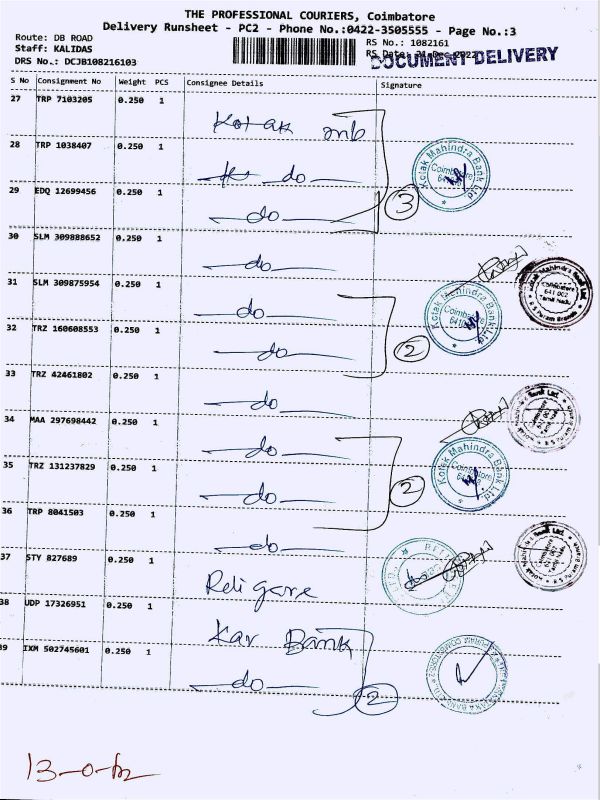 THE PROFESSIONAL COURIERS, Coimbatore
Delivery Runsheet - PC2 - Phone No.:0422-3505555 - Page No.:3
Route: DB ROAD
RS No.: 1082161
Staff: KALIDAS
RS Date: 21-Dec-2022
DRS No.: DCJB108216103
DOCUMENT DELIVERY
S No Consignment No Weight PCS Consignee Details Signature
27 TRP 7103205 0.250 1
Kotak
28 TRP 1038407 0.250 1
do
29 EDQ 12699456 0.250 1
do
3
Kotak Mahindra Bank Ltd
Coimbatore
30 SLM 309888652 0.250 1
do
31 SLM 309875954 0.250 1
do
Kotak Mahindra Bank Ltd.
Coimbatore
641 002
Tamil Nadu
32 TRZ 160608553 0.250 1
do
2
Kotak Mahindra Bank Ltd
Coimbatore
33 TRZ 42461802 0.250 1
do
34 MAA 297698442 0.250 1
do
35 TRZ 131237829 0.250 1
do
2
Kotak Mahindra Bank Ltd
Coimbatore
36 TRP 8041503 0.250 1
do
37 STY 827689 0.250 1
Religare
38 UDP 17326951 0.250 1
Kar Bank
39 IXM 502745601 0.250 1
do
2